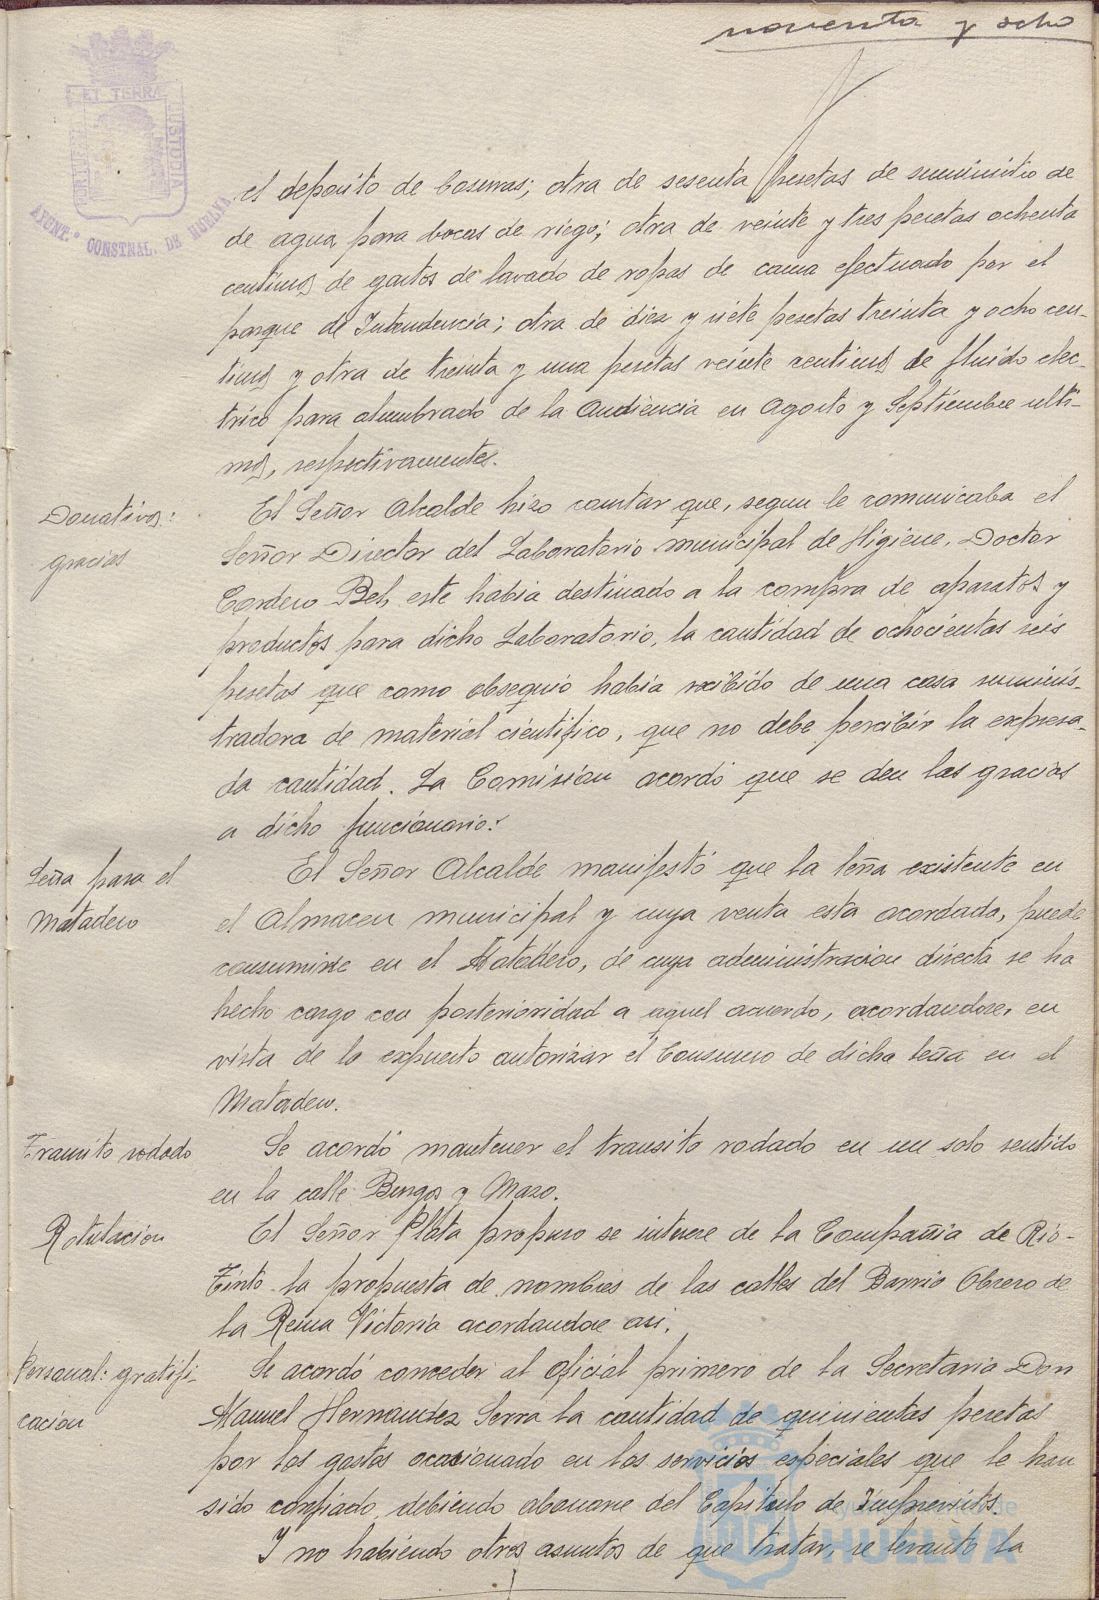 noventa y ocho
ET TERRÆ
PORTUS
CUSTODIA
AYUNT.º CONSTNAL. DE HUELVA
el deposito de basuras; otra de sesenta pesetas de suministro de
de agua para bocas de riego; otra de veinte y tres pesetas ochenta
centimos de gastos de lavado de ropas de cama efectuado por el
parque de Intendencia; otra de diez y siete pesetas treinta y ocho cen-
timos y otra de treinta y una pesetas veinte centimos de fluido elec-
trico para alumbrado de la Audiencia en Agosto y Septiembre ulti-
mos, respectivamentes.
Donativos:
gracias
El Señor Alcalde hizo constar que, segun le comunicaba el
Señor Director del Laboratorio municipal de Higiene, Doctor
Cordero Bel, este habia destinado a la compra de aparatos y
productos para dicho Laboratorio, la cantidad de ochocientas seis
pesetas que como obsequio habia recibido de una casa suminis-
tradora de material cientifico, que no debe percibir la expresa-
da cantidad. La Comision acordó que se den las gracias
a dicho funcionario.
Leña para el
Matadero
El Señor Alcalde manifestó que la leña existente en
el Almacen municipal y cuya venta esta acordada, puede
consumirse en el Matadero, de cuya administracion directa se ha
hecho cargo con posterioridad a aquel acuerdo, acordandose, en
vista de lo expuesto autorizar el consumo de dicha leña en el
Matadero.
Transito rodado
Se acordó mantener el transito rodado en un solo sentido
en la calle Burgos y Mazo.
Rotulacion
El Señor Plata propuso se interese de la Compañia de Rio-
Tinto la propuesta de nombres de las calles del Barrio Obrero de
la Reina Victoria acordandose asi.
Personal: gratifi-
cacion
Se acordó conceder al oficial primero de la Secretaria Don
Manuel Hernandez Serra la cantidad de quinientas pesetas
por los gastos ocasionado en los servicios especiales que le han
sido confiado, debiendo abonarse del Capitulo de Imprevistos.
Y no habiendo otros asuntos de que tratar, se levantó la
Ayuntamiento de
HUELVA